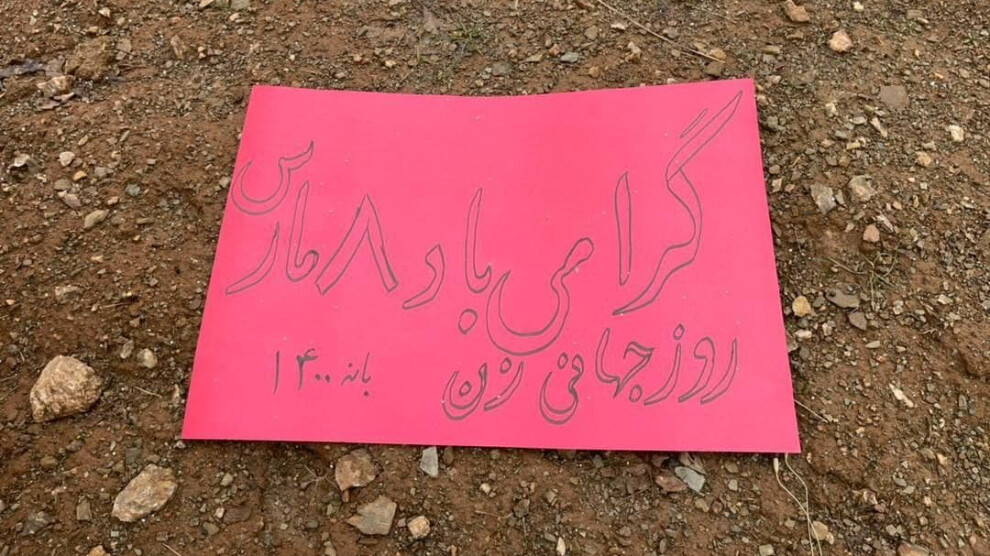 گرامی باد ۸ مارس
روز جهانی زن
بانه ۱۴۰۰